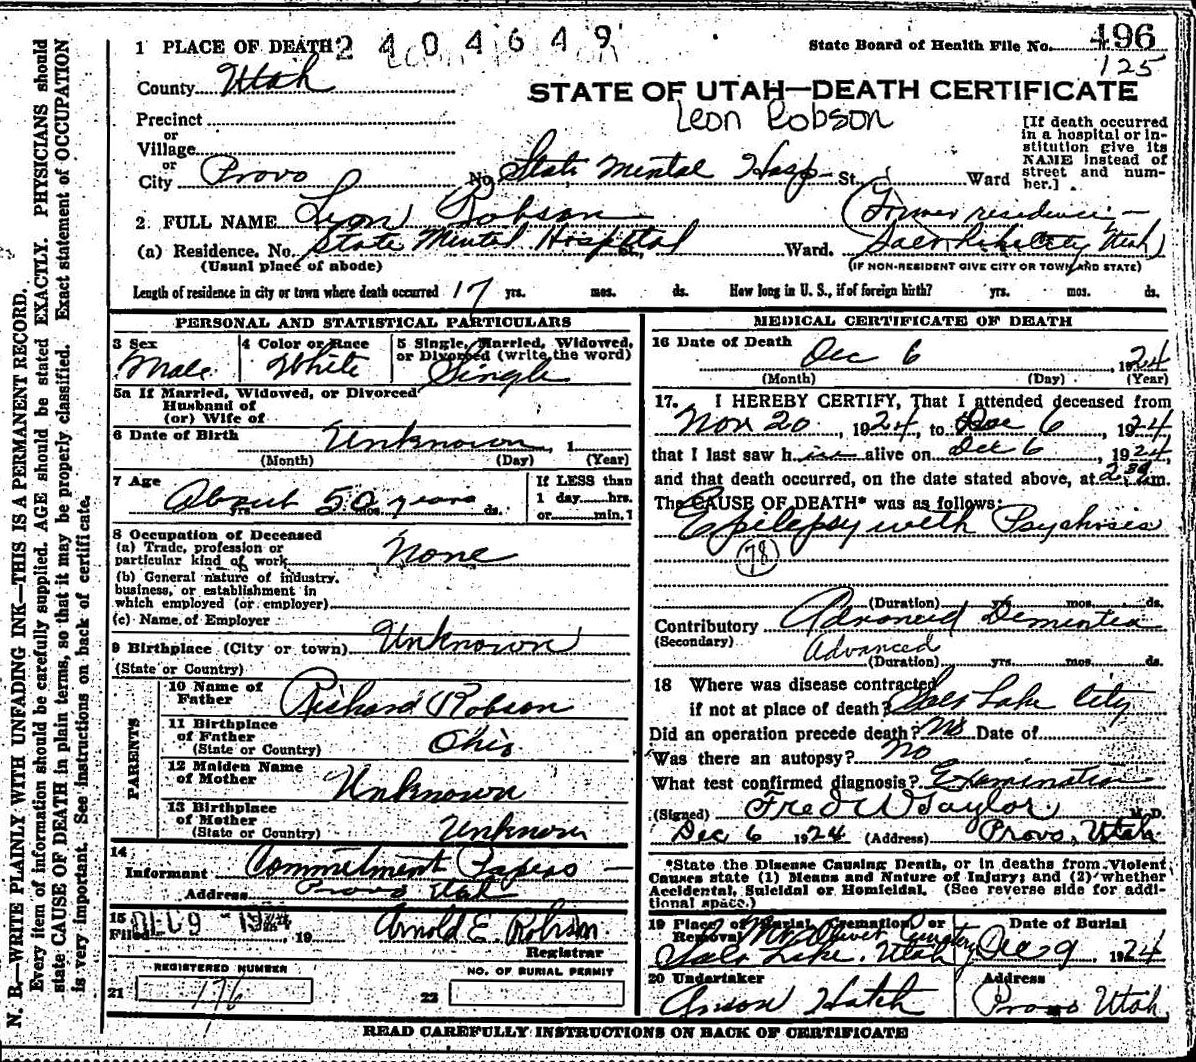 1 PLACE OF DEATH 2404649
State Board of Health File No. 496
125
County Utah
STATE OF UTAH—DEATH CERTIFICATE
Leon Robson
Precinct
or
Village
or
City Provo No. State Mental Hosp. St. Ward
[If death occurred
in a hospital or in-
stitution give its
NAME instead of
street and num-
ber.]
2 FULL NAME Leon Robson
(a) Residence. No. State Mental Hospital St., Ward.
(Usual place of abode)
(Former residence —
Salt Lake City Utah)
(IF NON-RESIDENT GIVE CITY OR TOWN AND STATE)
Length of residence in city or town where death occurred 17 yrs. mos. ds. How long in U. S., if of foreign birth? yrs. mos. ds.
PERSONAL AND STATISTICAL PARTICULARS
3 Sex
Male
4 Color or Race
White
5 Single, Married, Widowed,
or Divorced (write the word)
Single
5a If Married, Widowed, or Divorced
Husband of
(or) Wife of
6 Date of Birth Unknown, 1
(Month) (Day) (Year)
7 Age
About 50 years
yrs. mos. ds.
If LESS than
1 day hrs.
or min.?
8 Occupation of Deceased
(a) Trade, profession or
particular kind of work None
(b) General nature of industry,
business, or establishment in
which employed (or employer)
(c) Name of Employer
9 Birthplace (City or town) Unknown
(State or Country)
PARENTS
10 Name of
Father Richard Robson
11 Birthplace
of Father
(State or Country) Ohio
12 Maiden Name
of Mother Unknown
13 Birthplace
of Mother
(State or Country) Unknown
14
Informant Commitment Papers —
Address Provo Utah
15
Filed DEC 9 1924, 19 Arnold E. Robison
Registrar
REGISTERED NUMBER
21 176
NO. OF BURIAL PERMIT
22
MEDICAL CERTIFICATE OF DEATH
16 Date of Death
Dec 6, 1924
(Month) (Day) (Year)
17. I HEREBY CERTIFY, That I attended deceased from
Nov 20, 1924, to Dec 6, 1924
that I last saw him alive on Dec 6, 1924,
and that death occurred, on the date stated above, at 2 30 a.m.
The CAUSE OF DEATH* was as follows:
Epilepsy with Psychosis
78
(Duration) yrs. mos. ds.
Contributory Advanced Dementia
(Secondary) Advanced
(Duration) yrs. mos. ds.
18 Where was disease contracted
if not at place of death? Salt Lake City
Did an operation precede death? No Date of
Was there an autopsy? No
What test confirmed diagnosis? Examination
(Signed) Fred W Taylor M.D.
Dec 6 1924 (Address) Provo, Utah
*State the Disease Causing Death, or in deaths from Violent
Causes state (1) Means and Nature of Injury; and (2) whether
Accidental, Suicidal or Homicidal. (See reverse side for addi-
tional space.)
19 Place of Burial, Cremation or
Removal Mt Olivet Cemetery
Salt Lake, Utah
Date of Burial
Dec 9, 1924
20 Undertaker
Anson Hatch
Address
Provo Utah
READ CAREFULLY INSTRUCTIONS ON BACK OF CERTIFICATE
N. B.—WRITE PLAINLY WITH UNFADING INK—THIS IS A PERMANENT RECORD.
Every item of information should be carefully supplied. AGE should be stated EXACTLY. PHYSICIANS should
state CAUSE OF DEATH in plain terms, so that it may be properly classified. Exact statement of OCCUPATION
is very important. See instructions on back of certificate.